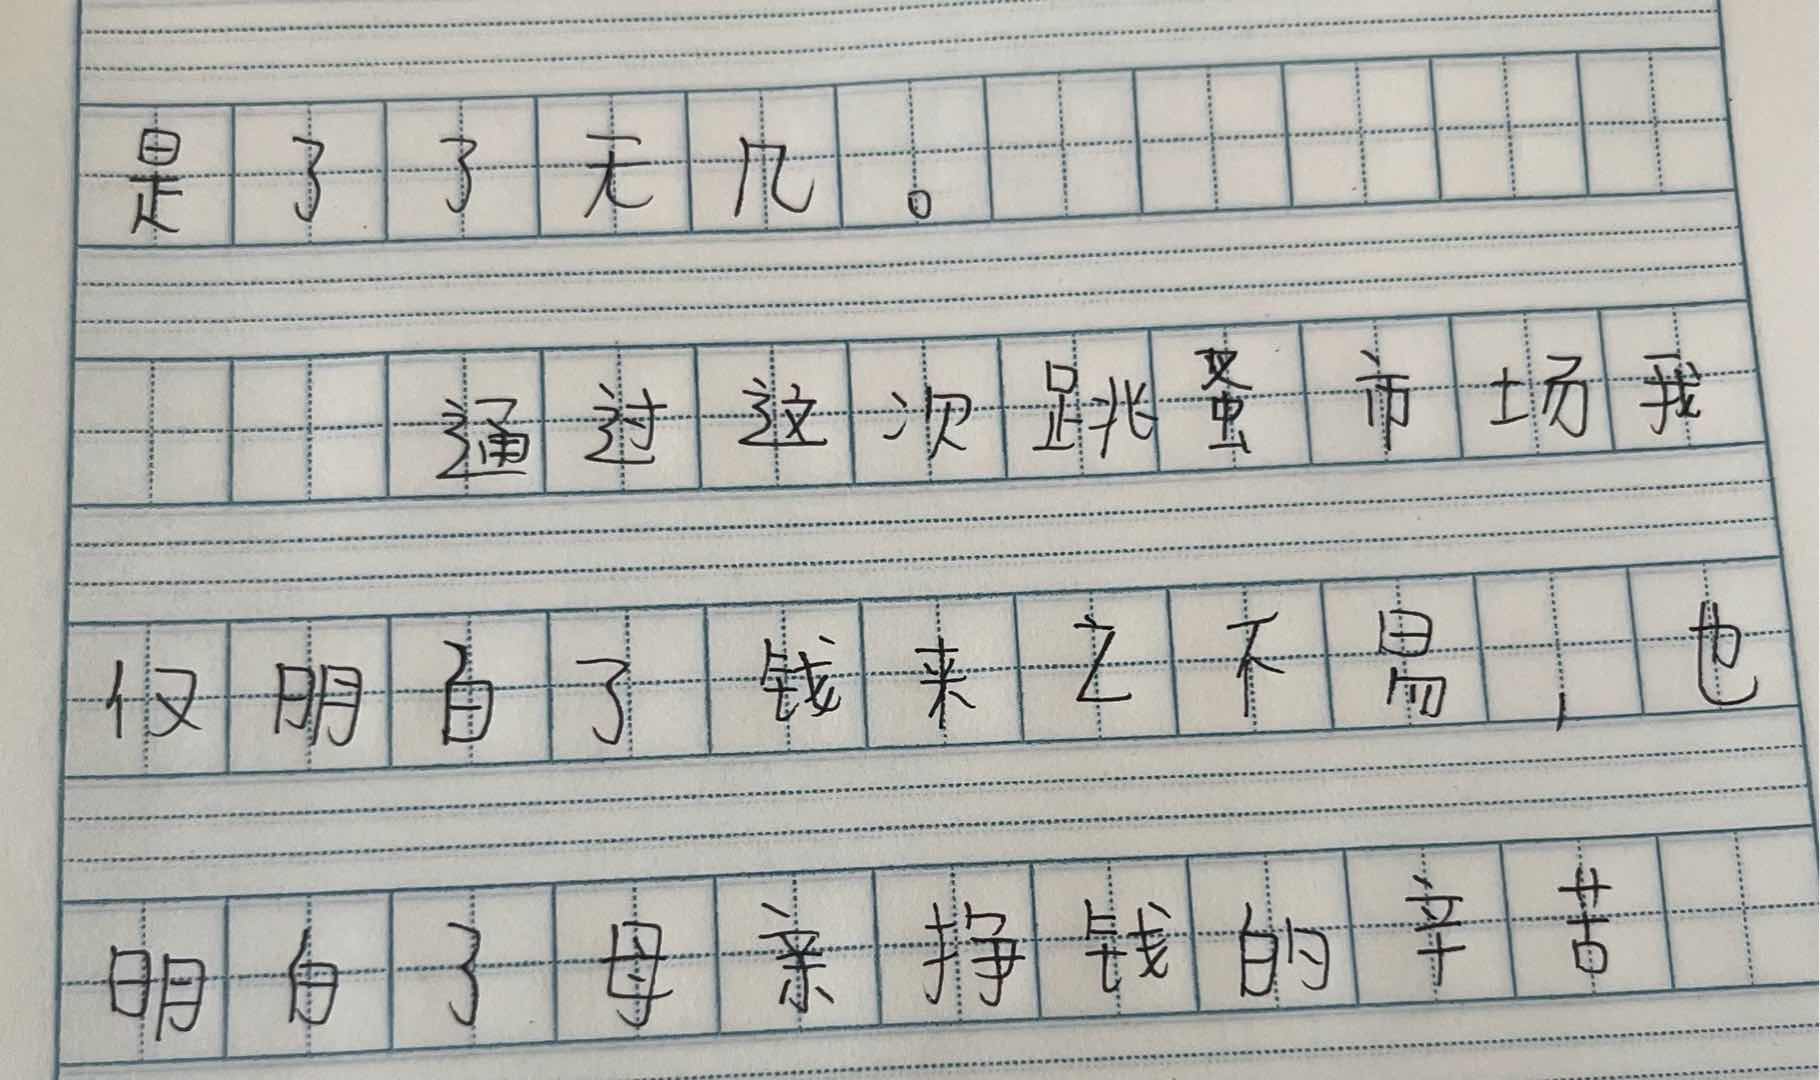 是了了无几。
通过这次跳蚤市场我
仅明白了钱来之不易,也
明白了母亲挣钱的辛苦